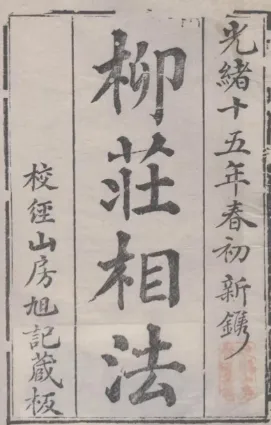 光緒十五年春初新鐫
柳莊相法
校經山房旭記蔵板